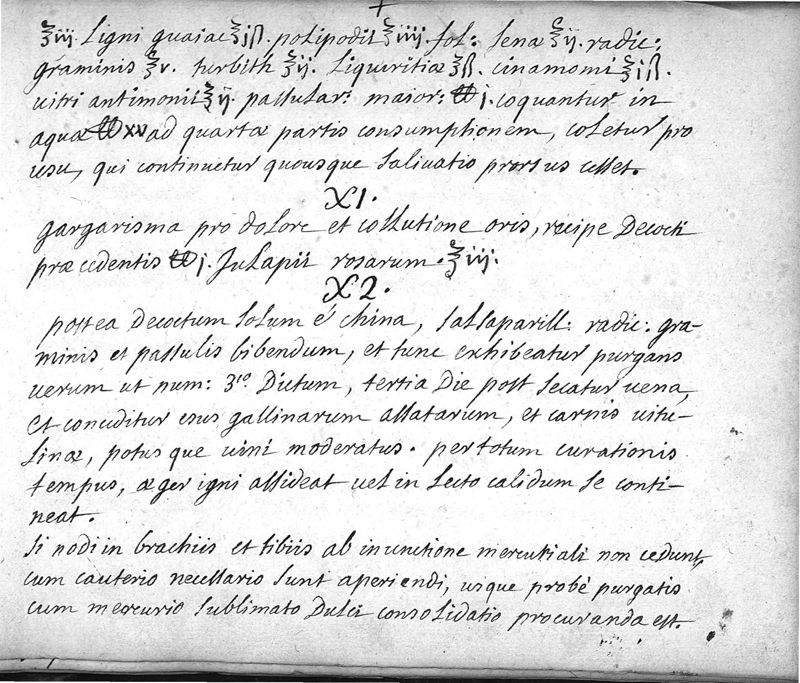 +
℥iij. Ligni guaiac ℥jß. polipodii ℥iiij. fol: senæ ℥ij. radic:
graminis ℥v. turbith ℥ij. Liquiritiæ ℥ß. cinamomi ℥jß.
uitri antimonii ℥ij. passular: maior: ℔ j. coquantur in
aquæ ℔ xv ad quartæ partis consumptionem, coletur pro
usu, qui continuetur quousque saliuatio prorsus cesset.
X1.
gargarisma pro dolore et collutione oris, recipe Decocti
præcedentis ℔ j. Julapii rosarum. ℥iij.
X2.
postea Decoctum solum é china, salsaparill: radic: gra-
minis et passulis bibendum, et tunc exhibeatur purgans
uerum ut num: 3io. Dictum, tertia Die post secatur uena,
et conceditur esus gallinarum assatarum, et carnis uitu-
linæ, potusque uini moderatus. per totum curationis
tempus, æger igni assideat uel in lecto calidum se conti-
neat.
Si nodi in brachiis et tibiis ab inunctione mercuriali non cedunt,
cum cauterio necessario sunt aperiendi, usque probé purgatis
cum mercurio sublimato Dulci consolidatio procuranda est.